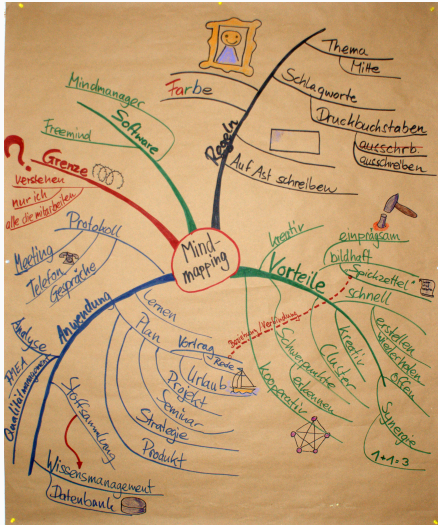 Mind-
mapping
Regeln
Thema
Mitte
Schlagworte
Druckbuchstaben
ausschrb.
ausschreiben
Auf Ast schreiben
Farbe
Software
Mindmanager
Freemind
Grenze
?
verstehen
nur ich
alle die mitarbeiten
Anwendung
Protokoll
Meeting
Telefon
Gespräche
Analyse
FMEA
Qualitätsmanagement
Stoffsammlung
Wissensmanagement
Datenbank
Lernen
Plan
Vortrag
Rede
Urlaub
Projekt
Seminar
Strategie
Produkt
Vorteile
kreativ
einprägsam
bildhaft
"Spickzettel"
schnell
erstellen
wiederholen
offen
Synergie
1+1=3
kreativ
Cluster
Schwerpunkte
erkennen
kooperativ
Beziehung/Verbindung